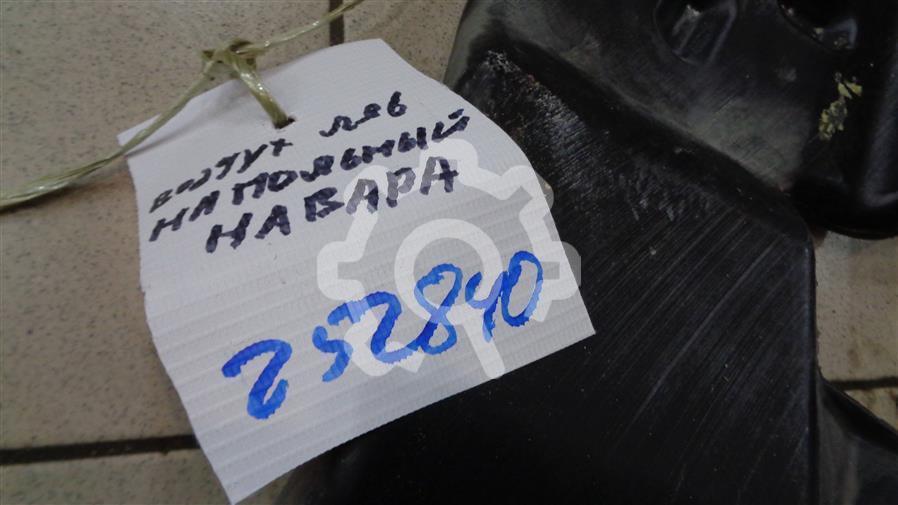 воздух лев
напольный
НАВАРА
252840